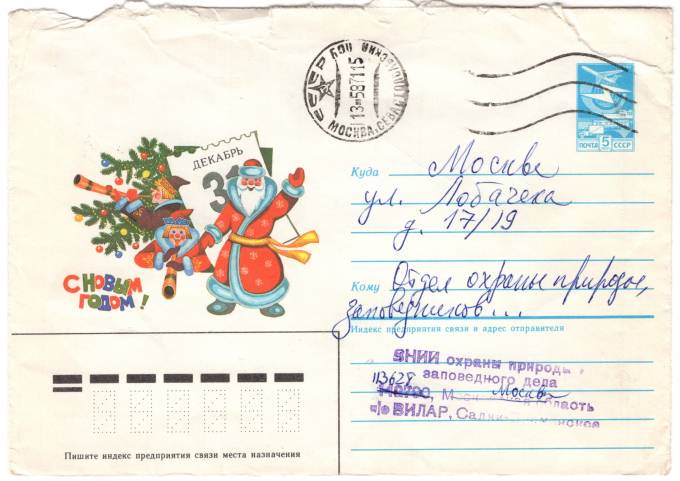 СССР МОСКВА, СЕВАСТОПОЛЬСКИЙ ПСУ
13 587115
ПОЧТА 5 СССР
ДЕКАБРЬ
31
С НОВЫМ
ГОДОМ!
Куда Москва
ул. Лобачека
д. 17/19
Кому Отдел охраны природы,
заповедников...
Индекс предприятия связи и адрес отправителя
ВНИИ охраны природы
заповедного дела
113628 Москва
область
п/о ВИЛАР,
Пишите индекс предприятия связи места назначения